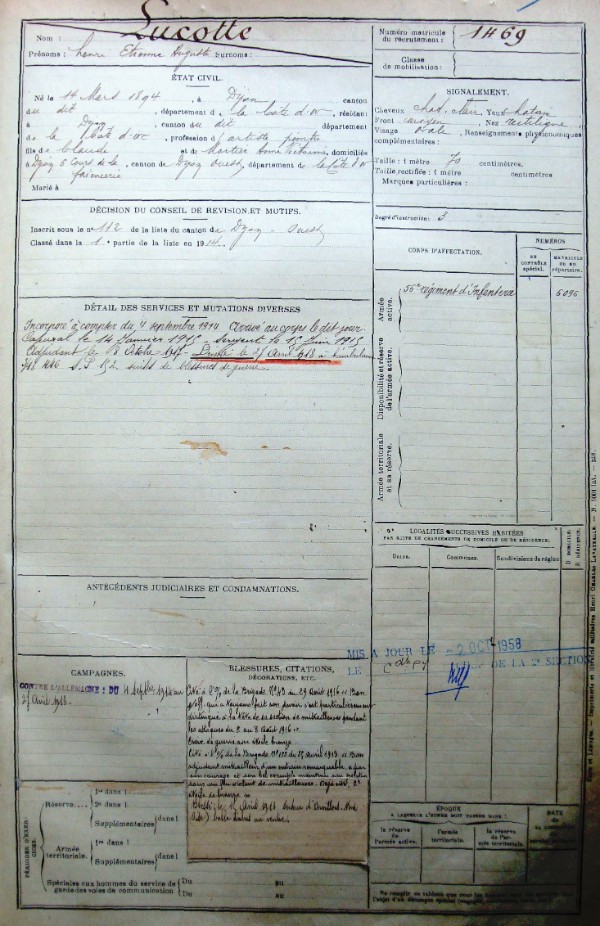 Nom : Lucotte
Prénoms : Henri Etienne Auguste Surnoms :
Numéro matricule du recrutement : 1469
Classe de mobilisation :
ÉTAT CIVIL.
Né le 14 Mars 1894, à Dijon canton
du dit, département de la Côte d'or, résidant
à Dijon canton du dit département
de la Côte d'or, profession d'artiste peintre
fils de Claude et de Martin Anne domiciliés
à Dijon 6 Cours de la canton de Dijon Ouest, département de la Côte d'or
Marié à
SIGNALEMENT.
Cheveux chat. clair Yeux chatain
Front moyen Nez rectiligne
Visage ovale, Renseignements physionomiques
complémentaires :
Taille : 1 mètre 70 centimètres.
Taille rectifiée : 1 mètre centimètres
Marques particulières :
Degré d'instruction : 3
DÉCISION DU CONSEIL DE REVISION ET MOTIFS.
Inscrit sous le n° 112 de la liste du canton de Dijon Ouest
Classé dans la 1e partie de la liste en 1914.
CORPS D'AFFECTATION.
NUMÉROS
AU CONTRÔLE spécial.
MATRICULE OU AU répertoire.
Armée active.
56e régiment d'Infanterie 6096
Disponibilité et réserve de l'armée active.
Armée territoriale et sa réserve.
DÉTAIL DES SERVICES ET MUTATIONS DIVERSES
Incorporé à compter du 4 septembre 1914 arrivé au corps le dit jour
Caporal le 14 Janvier 1915 Sergent le 15 Juin 1915
Adjudant le 18 Octobre 1917 Décédé le 27 Avril 1918 à l'ambulance
S.P 152 suites de blessures de guerre
ANTÉCÉDENTS JUDICIAIRES ET CONDAMNATIONS.
LOCALITÉS SUCCESSIVES HABITÉES
PAR SUITE DE CHANGEMENTS DE DOMICILE OU DE RÉSIDENCE.
Dates.
Communes.
Subdivisions de région
D DOMICILE.
R RÉSIDENCE.
MIS A JOUR LE -2 OCT 1958
LE DE LA 2e SECTION
CAMPAGNES.
CONTRE L'ALLEMAGNE : DU 4 Septbre 1914 au
27 Avril 1918
BLESSURES, CITATIONS, DÉCORATIONS, ETC.
Cité à l'O/ de la Brigade N° 43 du 29 Août 1916 « Bon
s/off. qui a toujours fait son devoir, s'est particulièrement
distingué à la tête de sa section de mitrailleuses pendant
les attaques du 2 au 8 Août 1916 »
Croix de guerre avec étoile bronze
Cité à l'O/ de la Brigade du 25 avril 1918 « Bon
adjudant mitrailleur, d'un entrain remarquable, a par
son courage et son bel exemple maintenu sa section
sous un feu violent de mitrailleuses.
étoile de bronze »
Blessé le Avril 1918
balle
PÉRIODES D'EXERCICES.
Réserve
1re dans l
2e dans l
Supplémentaires dans l
Armée territoriale.
1re dans l
Supplémentaires dans l
Spéciales aux hommes du service de garde des voies de communication
Du au
Du au
ÉPOQUE
À LAQUELLE L'HOMME DOIT PASSER DANS :
la réserve de l'armée active.
l'armée territoriale.
la réserve de l'armée territoriale.
DATE